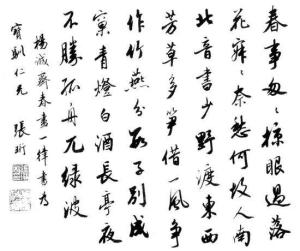 春事匆々掠眼過落
花寂々奈愁何故人南
北音書少野渡東西
芳草多笋借一風爭
作竹燕分數子別成
窠青燈白酒長亭夜
不勝孤舟兀綠波
楊誠齋春盡律書為
寶馴仁兄
張珩